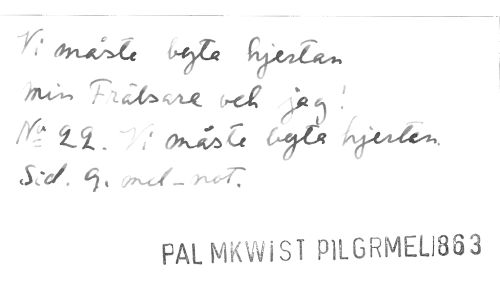 Vi måste byta hjertan
min Frälsare och jag!
No 22. Vi måste byta hjertan.
Sid. 9. mel-not.
PALMKWiST PILGRMEL1863